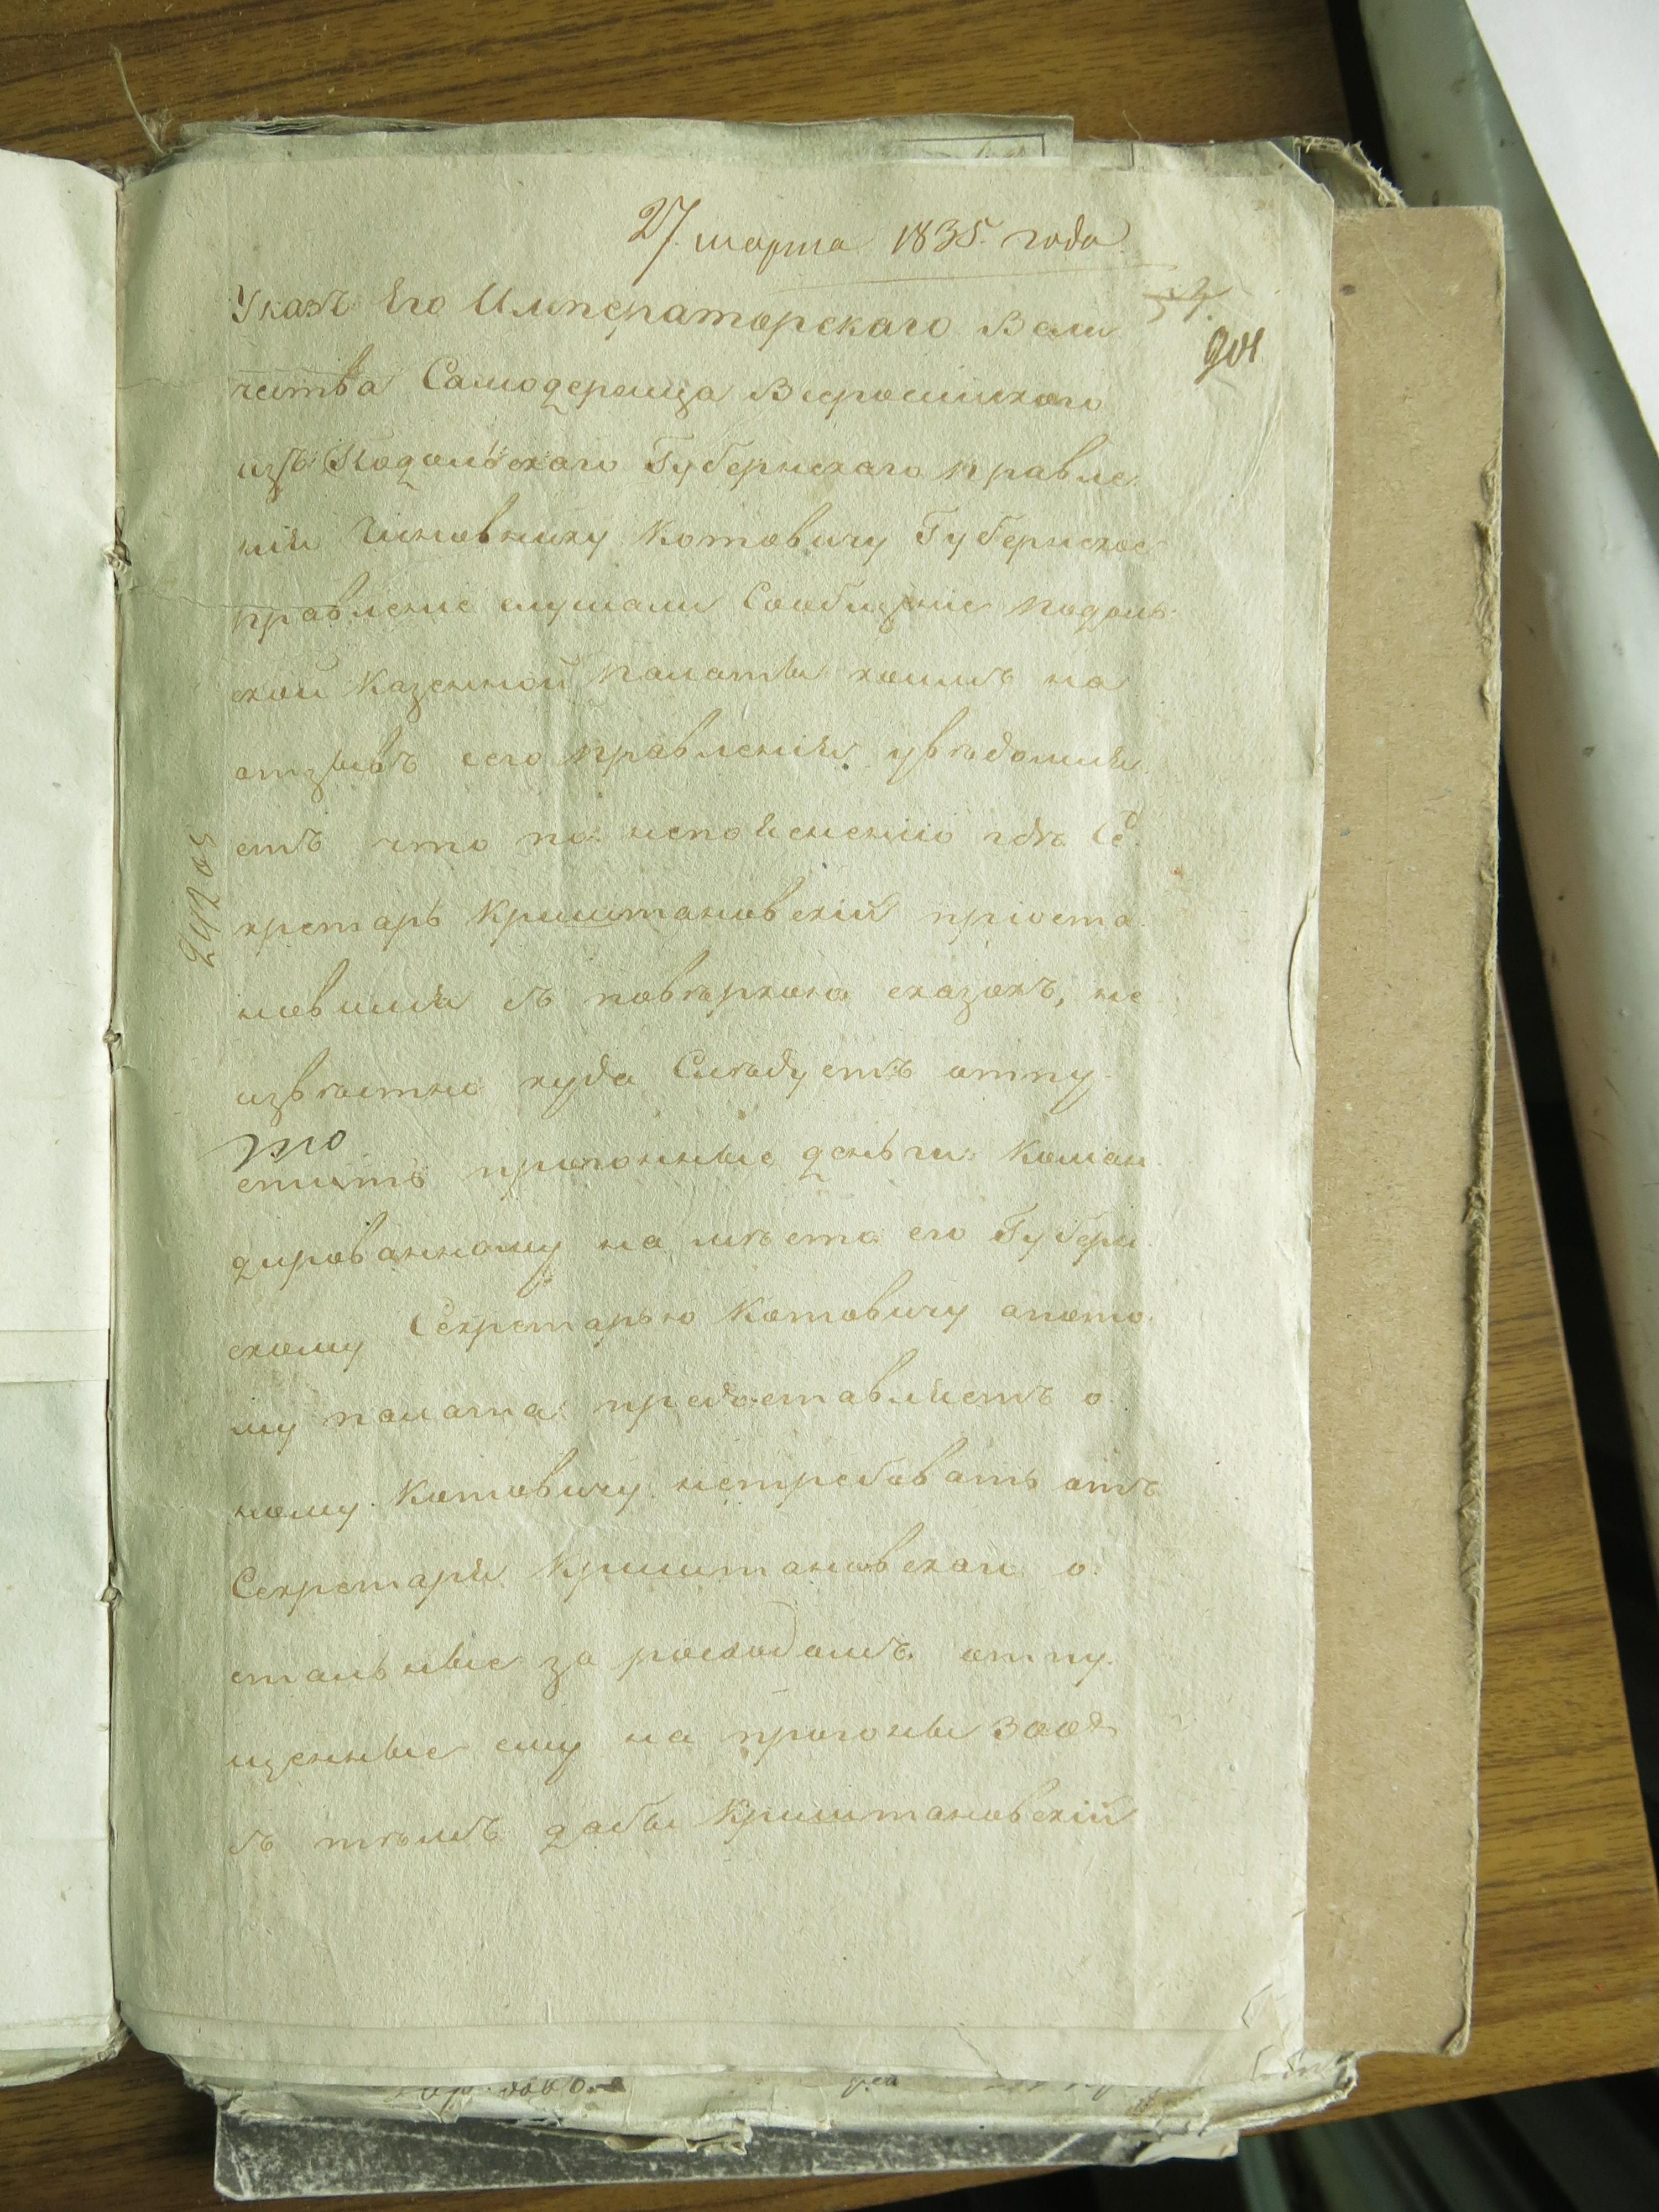 27. марта 1835. года
Указъ Его Императорскаго Вели
чества Самодержца Всеросийскаго
изъ Подольскаго Губернскаго правле
нія Чиновнику Котовичу Губернское
правление слушали Сообщение подоль
ской Казенной палаты коимъ на
отзывъ сего правленія уведомля
етъ что по неполученію где Се
кретарь Криштановский приоста
новился съ поверкою сказокъ, не
известно куда Следуетъ отпу
то
стить прогонные деньги коман
дированному на место его Губерн
скому Секретарю Котовичу апото
му палата предоставляетъ о
ному Котовичу истребовать отъ
Секретаря Криштановскаго о
стальные за росходомъ отпу
щенные ему на прогоны 300
съ темъ дабы Криштановский